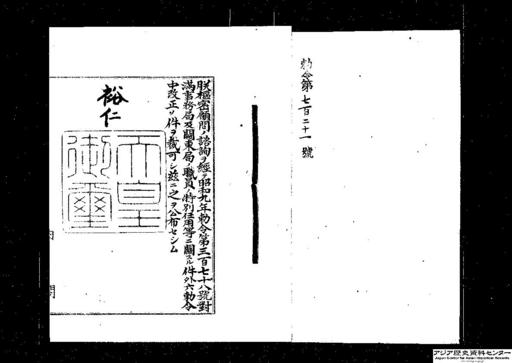 勅令第七百二十一號
朕樞密顧問ノ諮詢ヲ經テ昭和九年勅令第三百七十八號對
滿事務局及關東局ノ職員ノ特別任用等ニ關スル件外六勅令
中改正ノ件ヲ裁可シ茲ニ之ヲ公布セシム
裕仁
天皇御璽
内閣
アジア歴史資料センター
Japan Center for Asian Historical Records